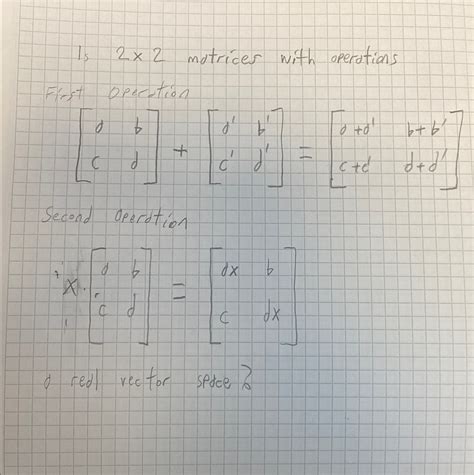 Is 2x2 matrices with operations
First Operation
[a b; c d] + [a' b'; c' d'] = [a+a' b+b'; c+c' d+d']
Second Operation
x · [a b; c d] = [ax b; c dx]
a real vector space?